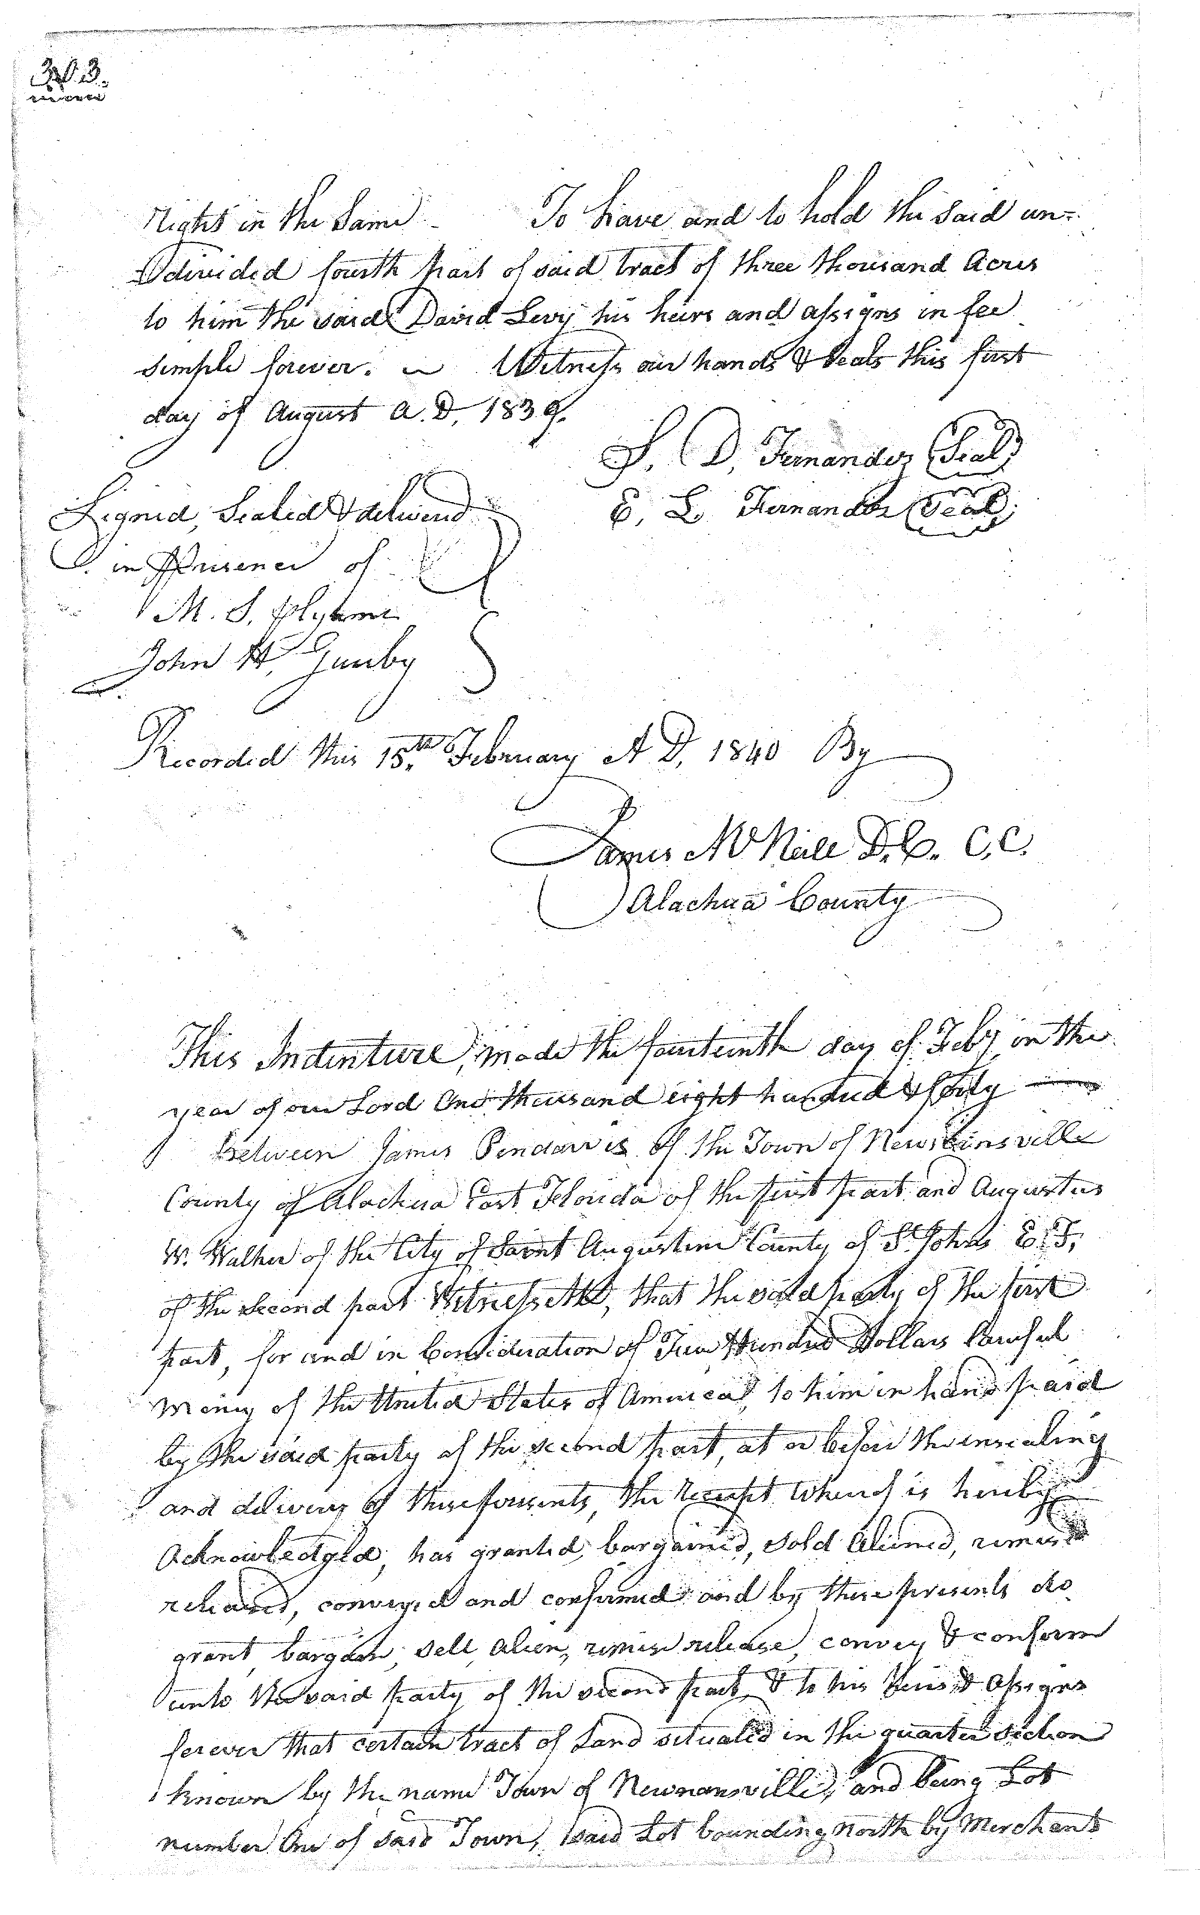 Right in the Same - To have and to hold the said un=
divided fourth part of said tract of three thousand Acres
to him the said David Levy his heirs and assigns in fee
simple forever. Witness our hands & Seals this first
day of August A. D. 1839.
S. D. Fernandez (Seal)
E. L. Fernandez (Seal)
Signed, Sealed & delivered
in Presence of
M. S.
John H. Gunby
Recorded this 15th February A D. 1840 By
James McNeill D. C. C. C.
Alachua County
This Indenture, made the fourteenth day of Feby in the
year of our Lord One thousand eight hundred & forty
between James Pendarvis of the Town of Newnansville
County of Alachua East Florida of the first part and Augustus
W. Walker of the City of Saint Augustine County of St Johns E. F.
of the second part Witnesseth, that the said party of the first
part, for and in Consideration of Hundred Dollars lawful
Money of the United States of America, to him in hand paid
by the said party of the second part, at or before the ensealing
and delivery of these presents, the receipt whereof is hereby
Acknowledged, has granted, bargained, sold Aliened, remised
released, conveyed and confirmed and by these presents do
grant, bargain, sell, alien, remise release, convey & confirm
unto the said party of the second part & to his heirs & Assigns
forever that certain tract of Land situated in the quarter section
known by the name Town of Newnansville, and being Lot
number One of said Town, said Lot bounding North by Merchant